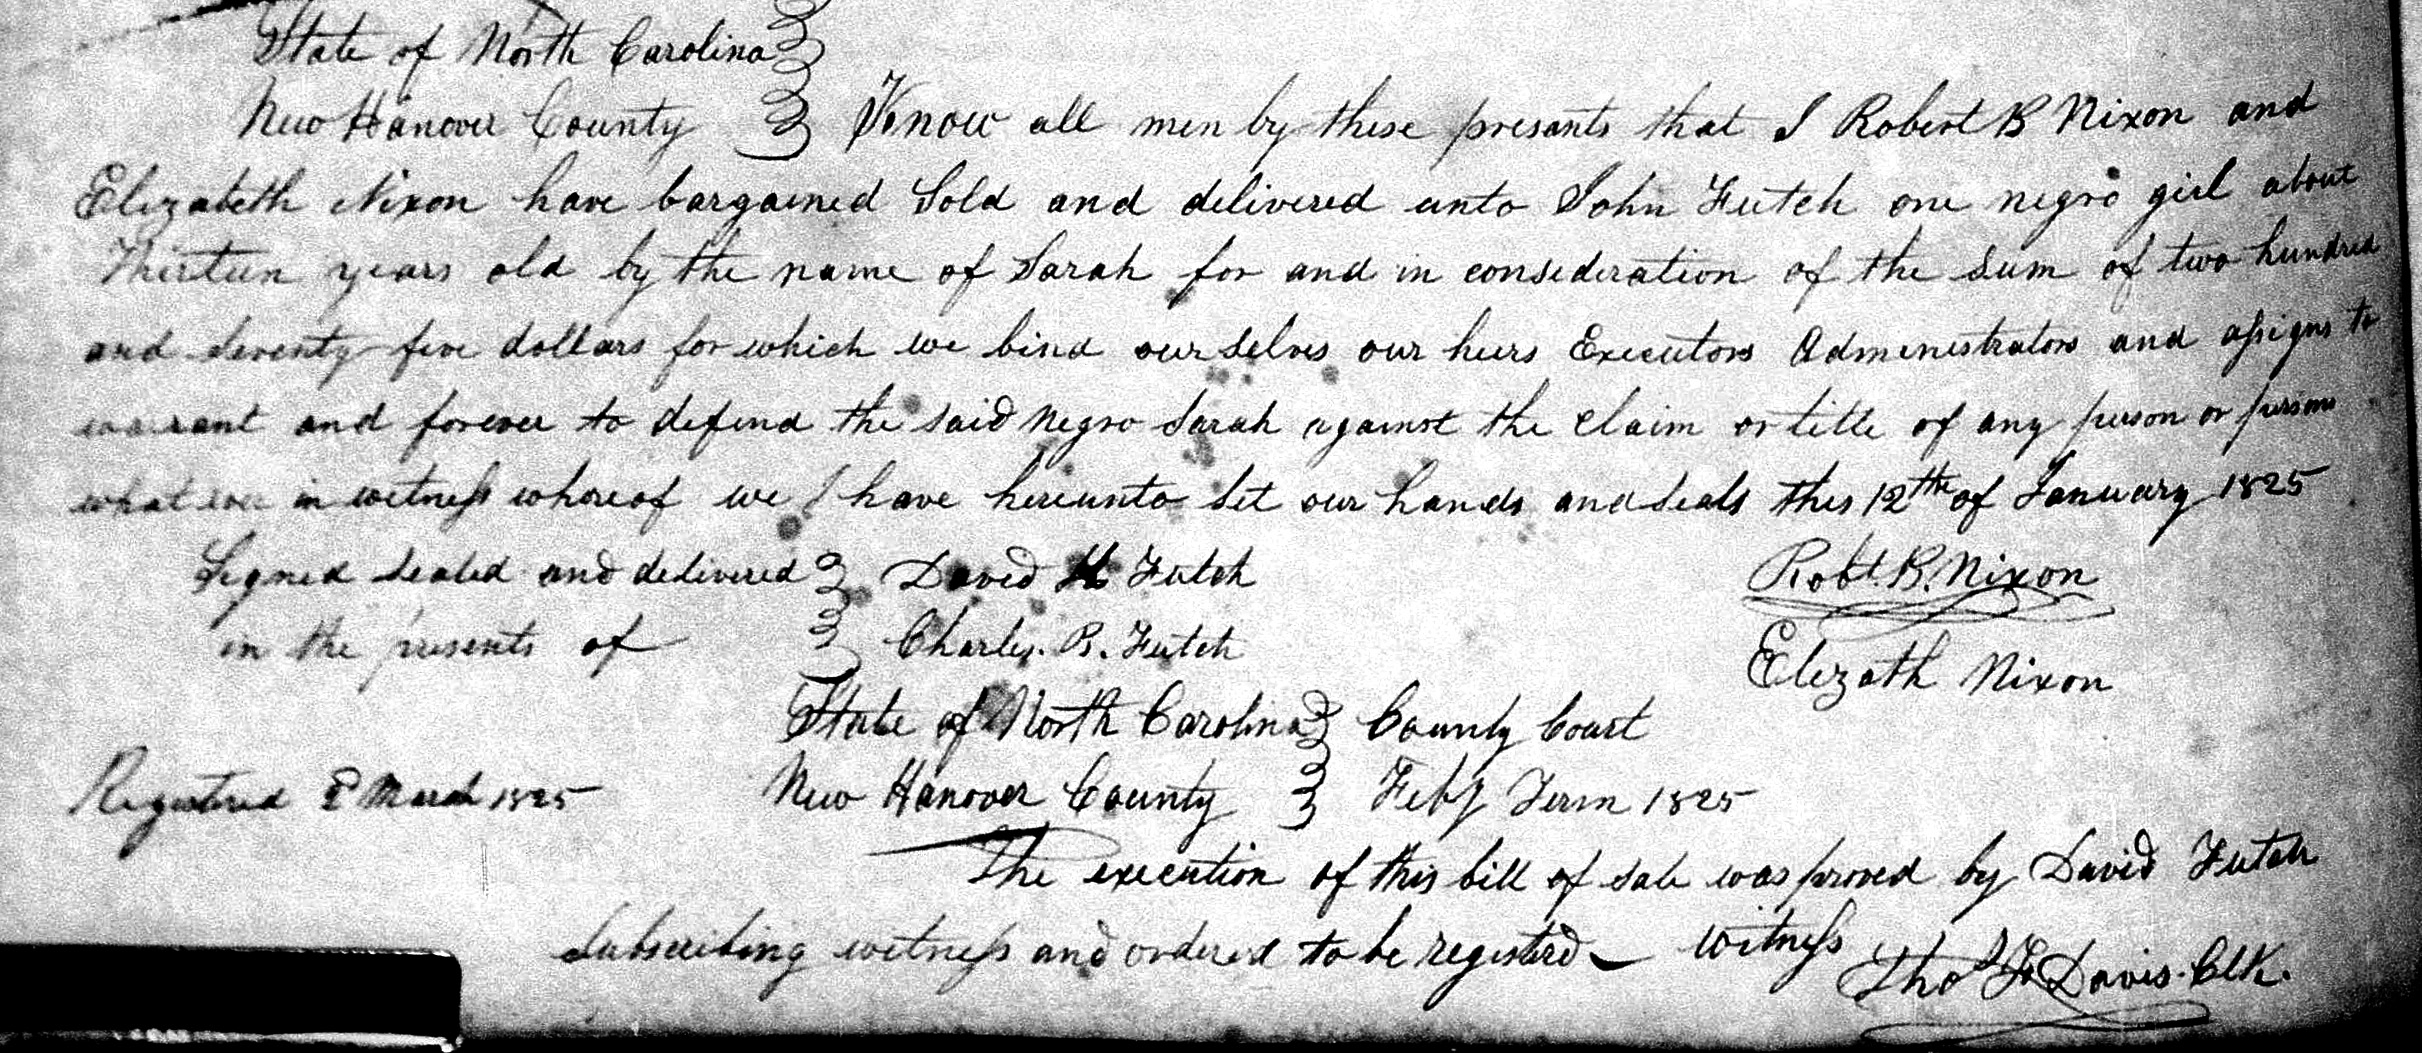 State of North Carolina
New Hanover County Know all men by these presants that I Robert B Nixon and
Elizabeth Nixon have bargained Sold and delivered unto John Futch one negro girl about
Thirteen years old by the name of Sarah for and in consideration of the Sum of two hundred
and Seventy five dollars for which we bind our Selves our heirs Executors Administrators and assigns to
warrant and forever to defend the said negro Sarah against the Claim or title of any person or persons
what ever in witness whereof we have hereunto Set our hands and Seals this 12th of January 1825
Signed Sealed and delivered David H Futch Robt. B. Nixon
in the presents of Charles. B. Futch Elizath Nixon
State of North Carolina County Court
Registered 8 March 1825 New Hanover County Feby Term 1825
The execution of this bill of Sale was proved by David Futch
Subscribing witness and ordered to be registerd - Witness
Thos F Davis. Clk.